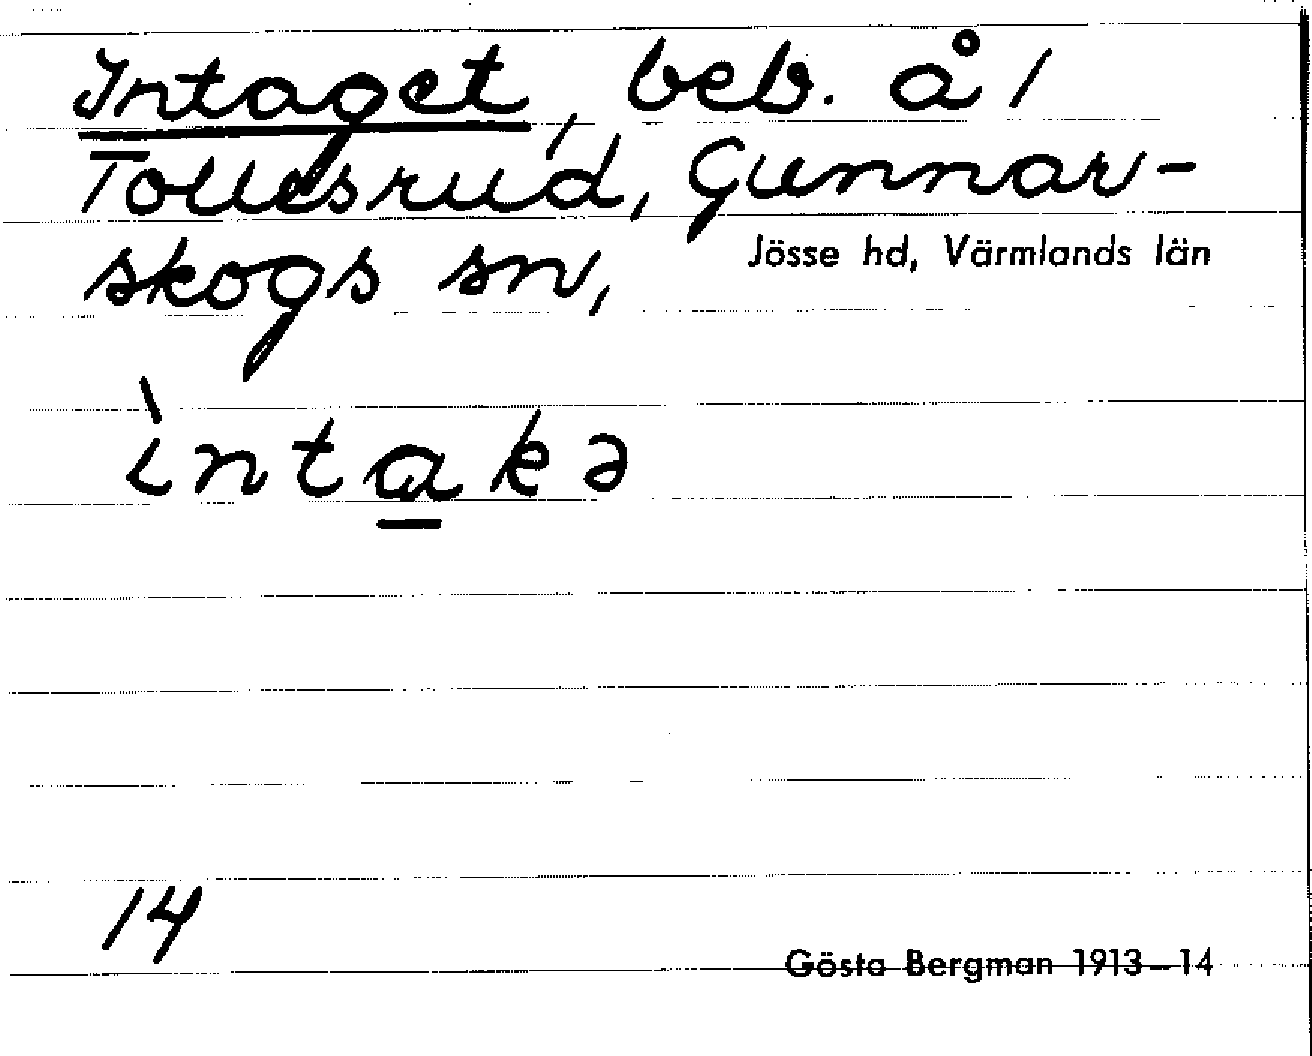 Intaget, beb. å /
Tollesrud, Gunnar-
skogs sn, Jösse hd, Värmlands län
ìnta̲kə
14
Gösta Bergman 1913–14